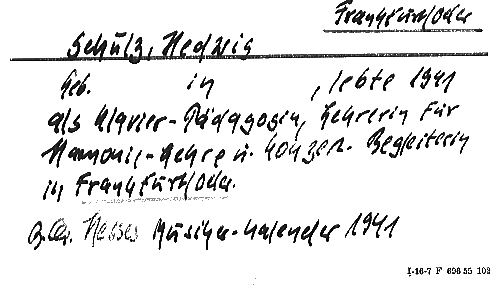 Frankfurt/Oder
Schulz, Hedwig
Geb. in , lebte 1941
als Klavier-Pädagogin, Lehrerin für
Harmonie-Lehre u. Konzert-Begleiterin
in Frankfurt/Oder.
Hesses Musiker-Kalender 1941
I-16-7 F 606 55 103